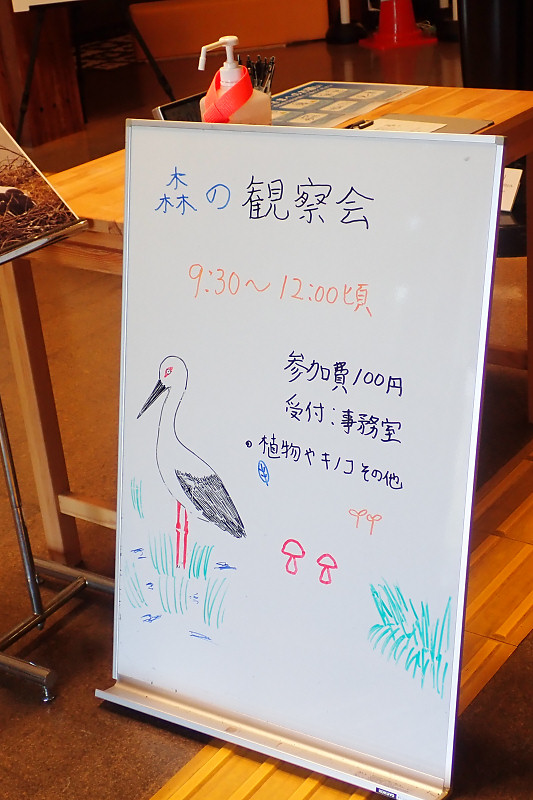 森の観察会
9:30〜12:00頃
参加費100円
受付:事務室
•植物やキノコその他